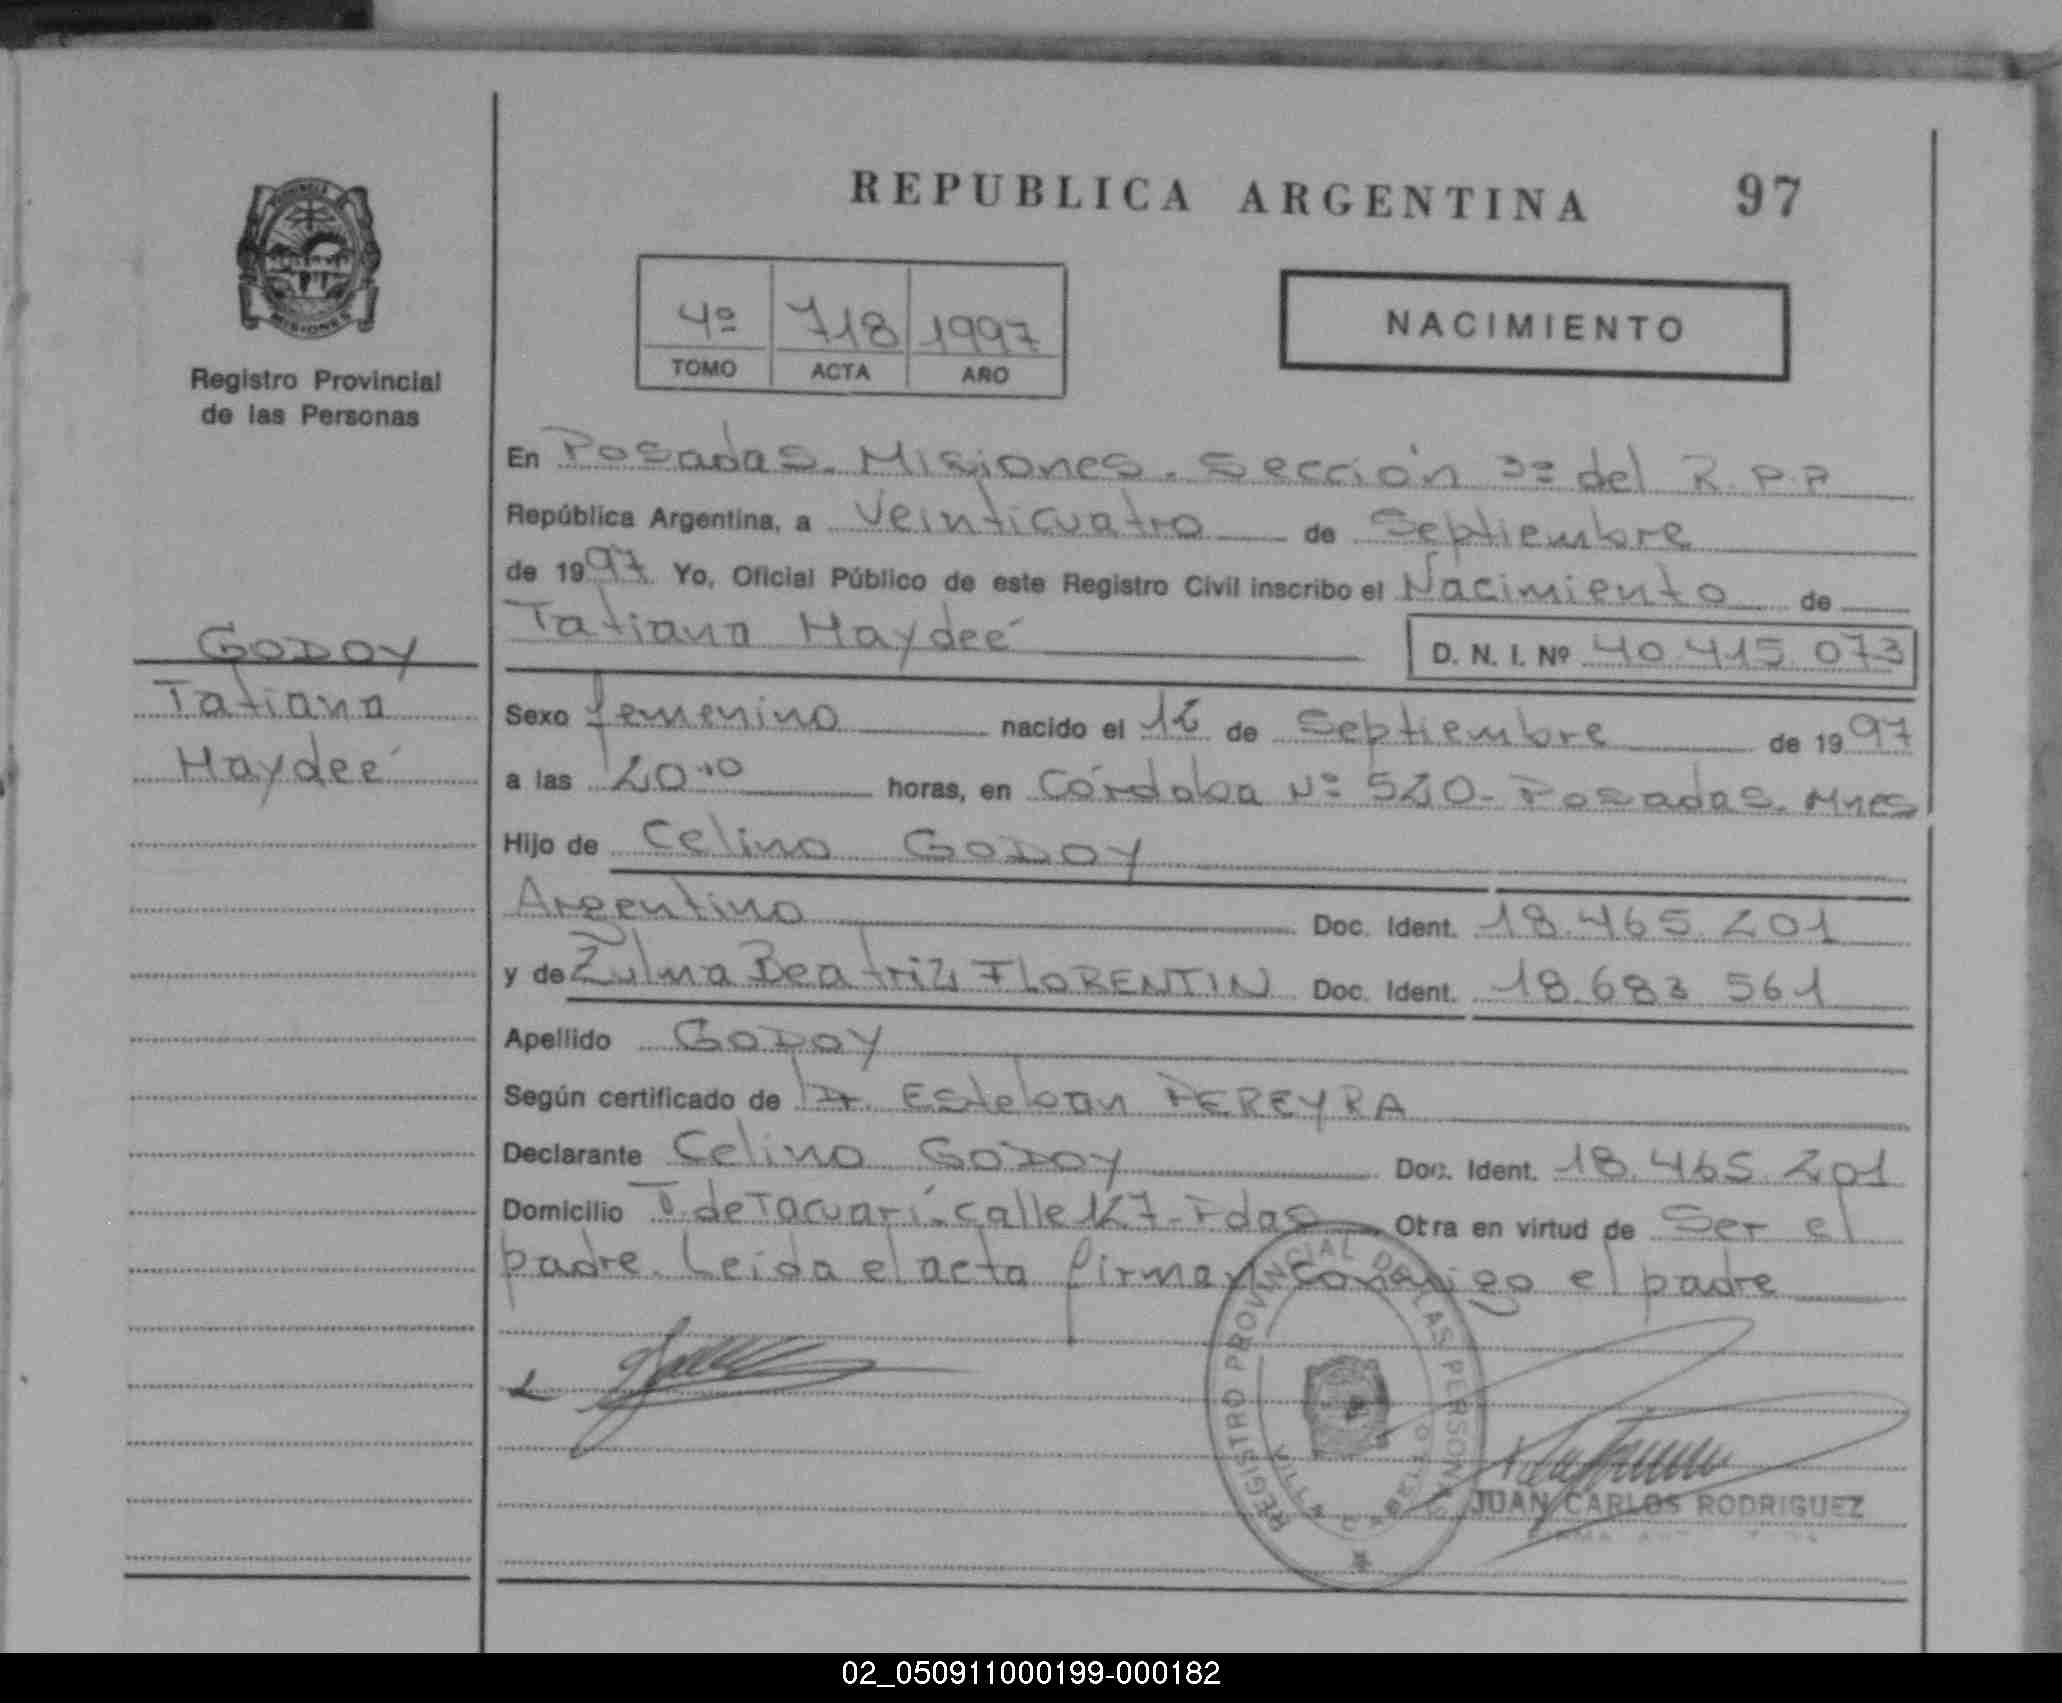 REPUBLICA ARGENTINA 97
4º 718 1997
TOMO ACTA AÑO
NACIMIENTO
MISIONES
Registro Provincial
de las Personas
GODOY
Tatiana
Haydeé
En Posadas. Misiones. Sección 3ª del R.P.P
República Argentina, a Veinticuatro de Septiembre
de 1997 Yo, Oficial Público de este Registro Civil inscribo el Nacimiento de
Tatiana Haydeé D. N. I. Nº 40.415.073
Sexo femenino nacido el de Septiembre de 1997
a las horas, en Córdoba Nº Posadas. Mnes
Hijo de Celino GODOY
Argentino Doc. Ident. 18.465.201
y de Zulma Beatriz FLORENTIN Doc. Ident. 18.683 561
Apellido GODOY
Según certificado de Dr. Esteban PEREYRA
Declarante Celino GODOY Doc. Ident. 18.465.201
Domicilio T. de Tacuarí. calle 127 - Pdas Otra en virtud de Ser el
padre. Leída el acta firma conmigo el padre
REGISTRO PROVINCIAL DE LAS PERSONAS
JUAN CARLOS RODRIGUEZ
02_050911000199-000182